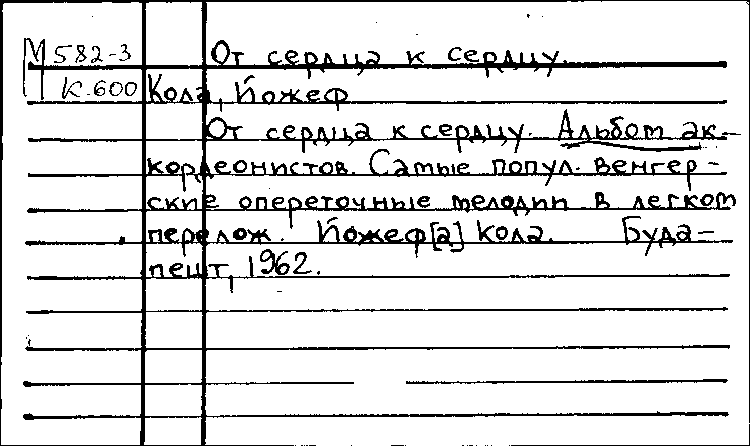 М 582-3 От сердца к сердцу.
К.600 Кола, Йожеф
От сердца к сердцу. Альбом ак-
кордеонистов. Самые попул. венгер-
ские опереточные мелодии в легком
перелож. Йожеф[а] Кола. Буда-
пешт, 1962.